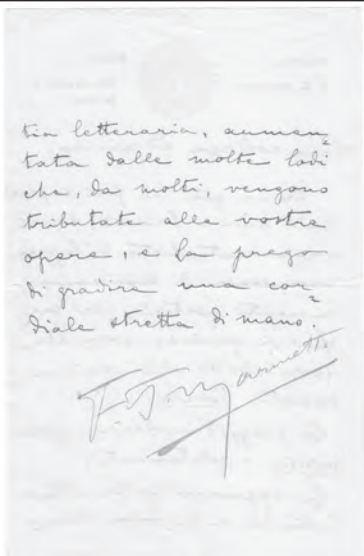 tia letteraria, aumen=
tata dalle molte lodi
che, da molti, vengono
tributate alle vostre
opere, e la prego
di gradire una cor=
diale stretta di mano.
F. T. Marinetti